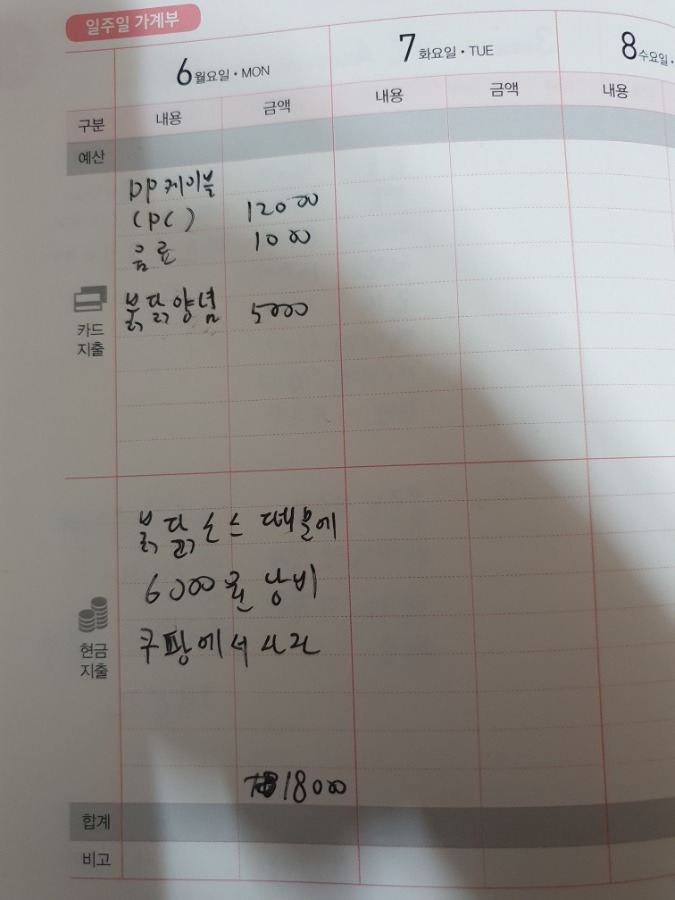 일주일 가계부
6 월요일 • MON
7 화요일 • TUE
8 수요일 •
구분 내용 금액 내용 금액 내용
예산
DP케이블
(PC) 12000
음료 1000
카드
지출
붉닭양념 5000
붉닭소스 땜문에
6000원 낭비
쿠팡에서 사라
현금
지출
18000
합계
비고